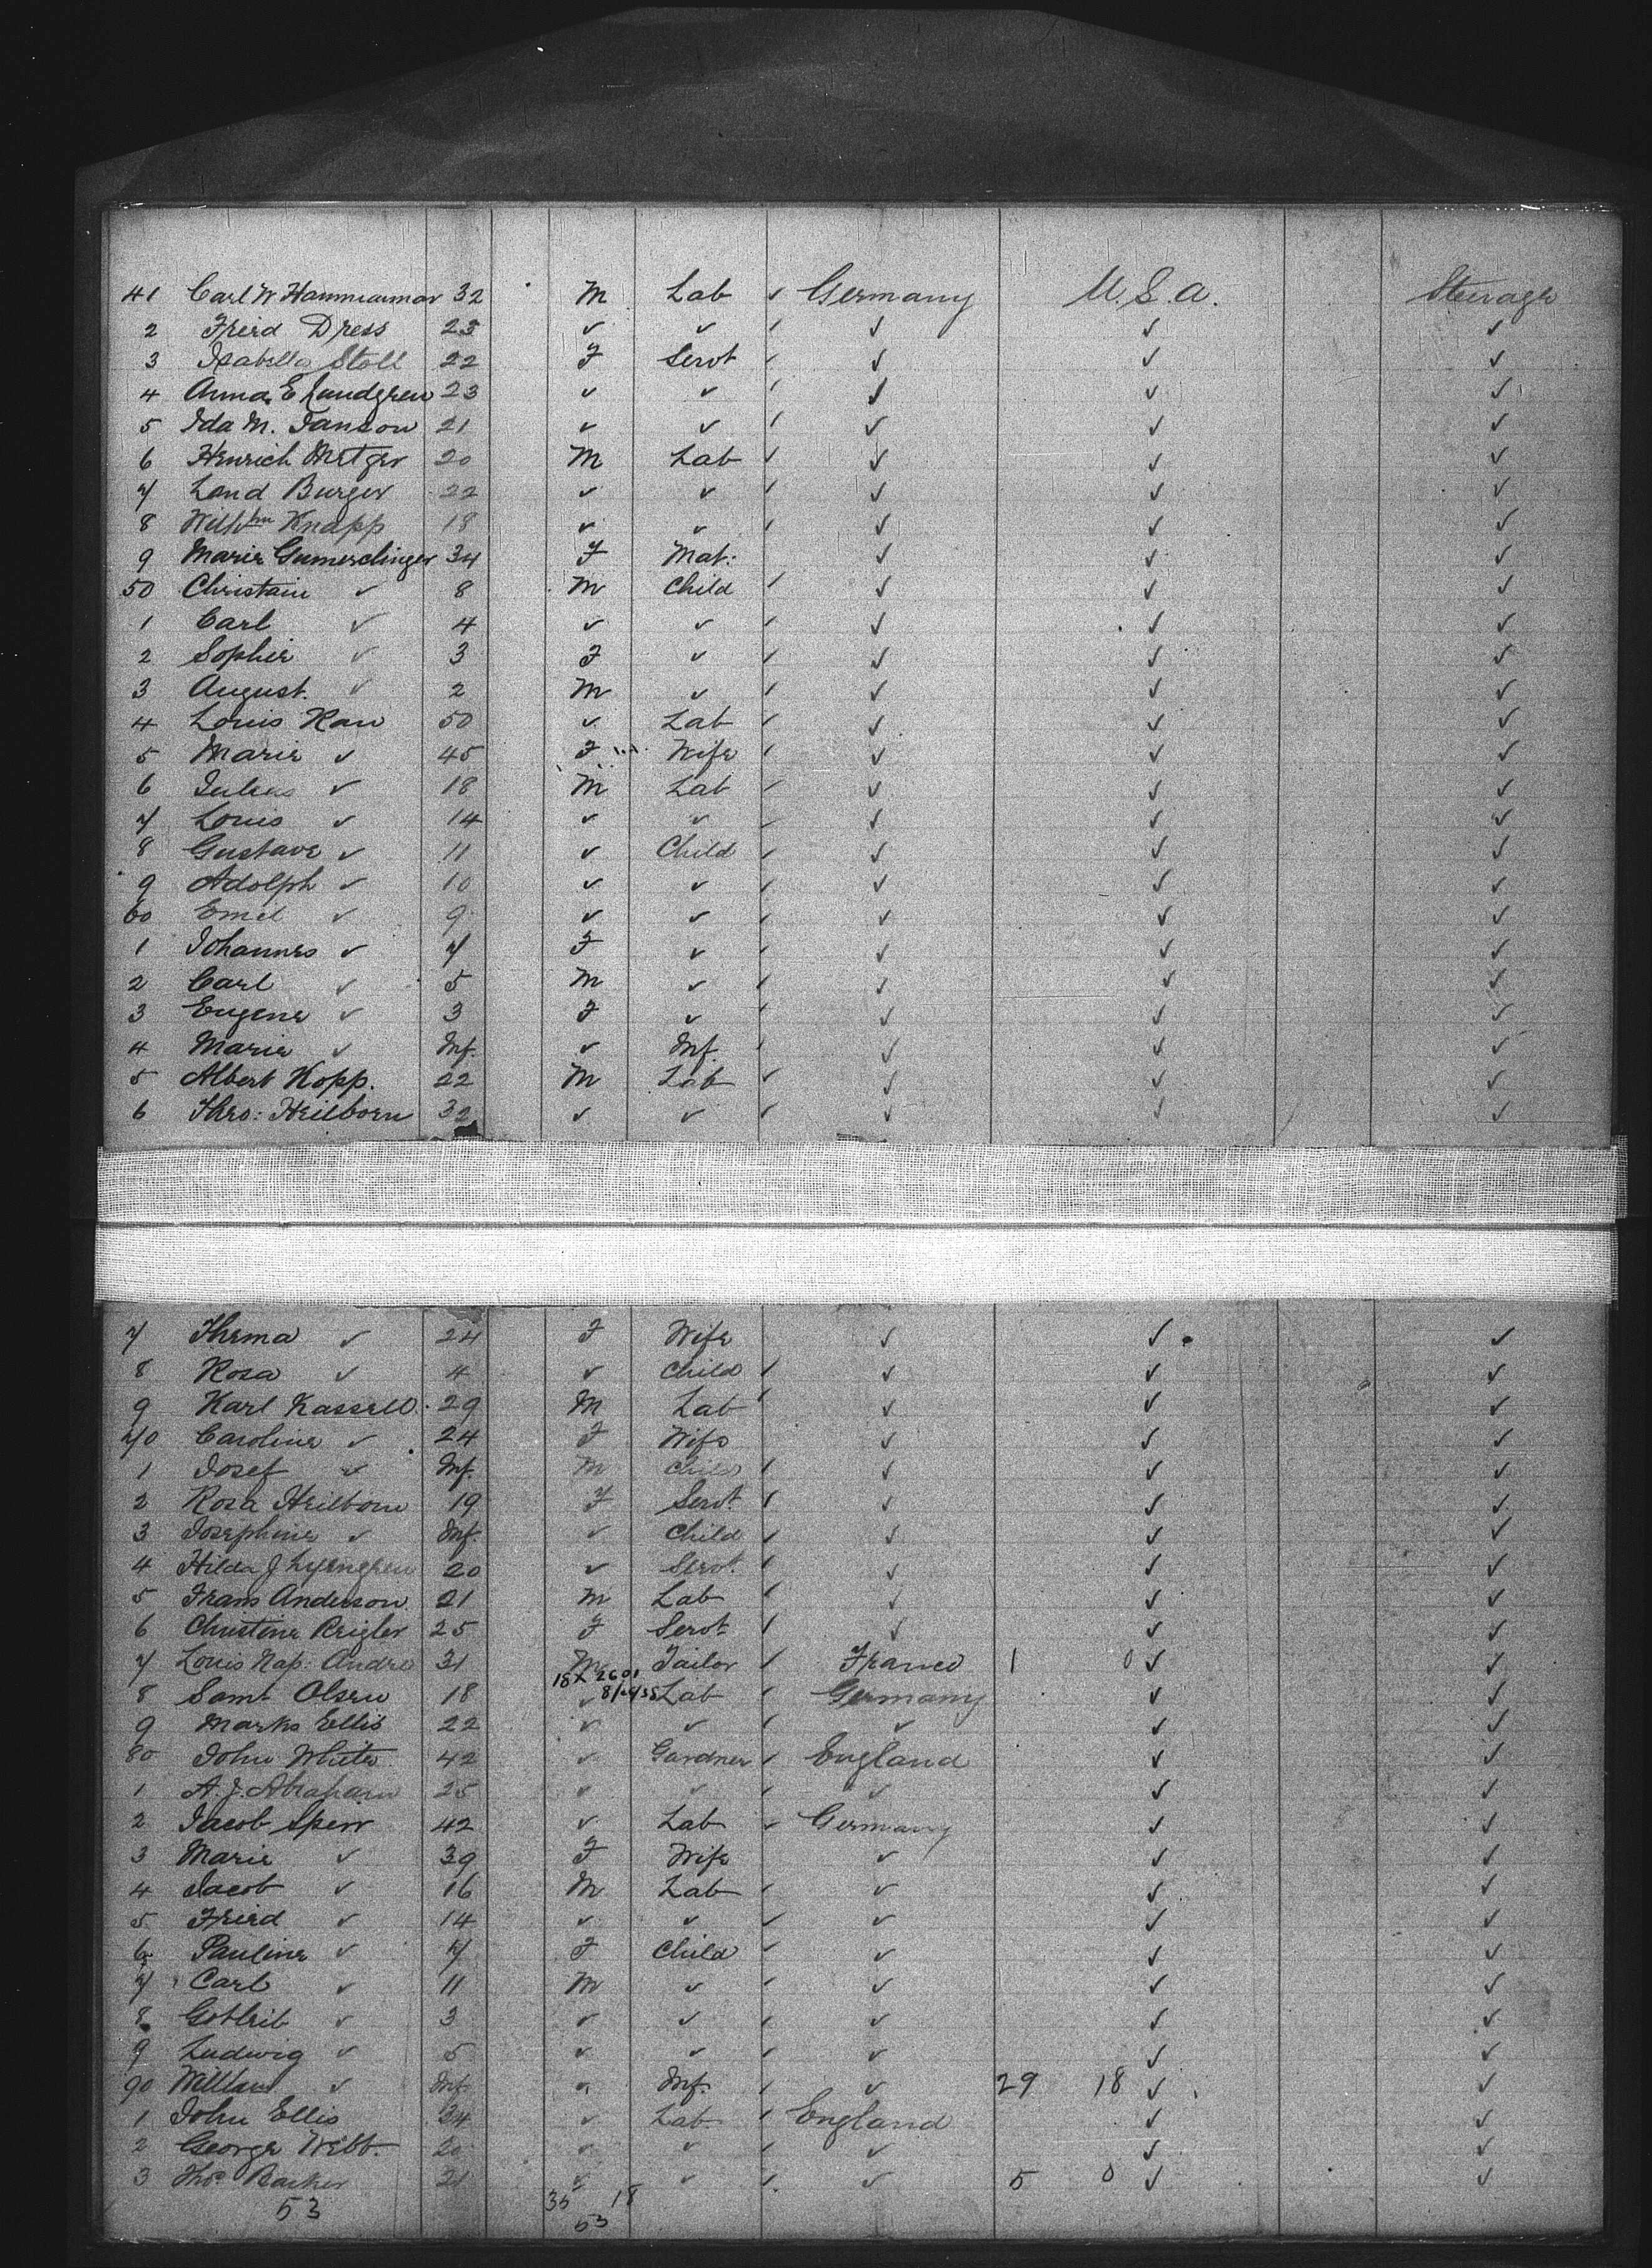 41 Carl W Hammarmar 32 M Lab ✓ Germany U.S.A. Steerage
2 Fried Dress 23 ✓ ✓ ✓ ✓ ✓ ✓
3 Isabella Stoll 22 F Servt ✓ ✓ ✓ ✓
4 Anna E Lundgren 23 ✓ ✓ ✓ ✓ ✓ ✓
5 Ida M. Janson 21 ✓ ✓ ✓ ✓ ✓ ✓
6 Henrich Metzger 20 M Lab ✓ ✓ ✓ ✓
7 Burger 22 ✓ ✓ ✓ ✓ ✓ ✓
8 Wilhm Knapp 18 ✓ ✓ ✓ ✓ ✓ ✓
9 Marie Gumerdinger 34 F Mat: ✓ ✓ ✓
50 Christain ✓ 8 M Child ✓ ✓ ✓ ✓
1 Carl ✓ 4 ✓ ✓ ✓ ✓ ✓ ✓
2 Sophie ✓ 3 F ✓ ✓ ✓ ✓ ✓
3 August. ✓ 2 M ✓ ✓ ✓ ✓ ✓
4 Louis Rau 50 ✓ Lab ✓ ✓ ✓ ✓
5 Marie ✓ 45 F Wife ✓ ✓ ✓ ✓
6 Julius ✓ 18 M Lab ✓ ✓ ✓ ✓
7 Louis ✓ 14 ✓ ✓ ✓ ✓ ✓ ✓
8 Gustave ✓ 11 ✓ Child ✓ ✓ ✓ ✓
9 Adolph ✓ 10 ✓ ✓ ✓ ✓ ✓ ✓
60 Emil ✓ 9 ✓ ✓ ✓ ✓ ✓ ✓
1 Johannes ✓ 7 F ✓ ✓ ✓ ✓ ✓
2 Carl ✓ 5 M ✓ ✓ ✓ ✓ ✓
3 Eugene ✓ 3 F ✓ ✓ ✓ ✓ ✓
4 Marie ✓ Inf. ✓ Inf. ✓ ✓ ✓ ✓
5 Albert Kopp. 22 M Lab ✓ ✓ ✓ ✓
6 Theo: Heilborn 32 ✓ ✓ ✓ ✓ ✓ ✓
7 Therma ✓ 24 F Wife ✓ ✓ ✓
8 Rosa ✓ 4 ✓ Child ✓ ✓ ✓ ✓
9 Karl Kassell 29 M Lab ✓ ✓ ✓ ✓
70 Caroline ✓ 24 F Wife ✓ ✓ ✓
1 Josef ✓ Inf. M Child ✓ ✓ ✓ ✓
2 Rosa Heilborn 19 F Servt. ✓ ✓ ✓ ✓
3 Josephine ✓ Inf. ✓ Child ✓ ✓ ✓ ✓
4 Hilda J 20 ✓ Servt. ✓ ✓ ✓ ✓
5 Frans Anderson 21 M Lab ✓ ✓ ✓ ✓
6 Christine Reigler 25 F Servt ✓ ✓ ✓ ✓
7 Louis Nap: Andre 31 M Tailor ✓ France 1 0 ✓ ✓
18X 2601
8 Saml Olsen 18 ✓ Lab ✓ Germany ✓ ✓
9 Marks Ellis 22 ✓ ✓ ✓ ✓ ✓ ✓
80 John White 42 ✓ Gardner ✓ England ✓ ✓
1 A. J. Abraham 25 ✓ ✓ ✓ ✓ ✓ ✓
2 Jacob Sperr 42 ✓ Lab ✓ Germany ✓ ✓
3 Marie ✓ 39 F Wife ✓ ✓ ✓
4 Jacob ✓ 16 M Lab ✓ ✓ ✓ ✓
5 Fried ✓ 14 ✓ ✓ ✓ ✓ ✓ ✓
6 Pauline ✓ 7 F Child ✓ ✓ ✓ ✓
7 Carl ✓ 11 M ✓ ✓ ✓ ✓ ✓
8 Gotleib ✓ 3 ✓ ✓ ✓ ✓ ✓ ✓
9 Ludwig ✓ 5 ✓ ✓ ✓ ✓ ✓ ✓
90 ✓ Inf ✓ Inf. ✓ ✓ 29 18 ✓ ✓
1 John Ellis 34 ✓ Lab ✓ England ✓ ✓
2 George Webb. 20 ✓ ✓ ✓ ✓ ✓ ✓
3 Thos. Barker 21 ✓ ✓ ✓ ✓ 5 0 ✓ ✓
53 35 18
53